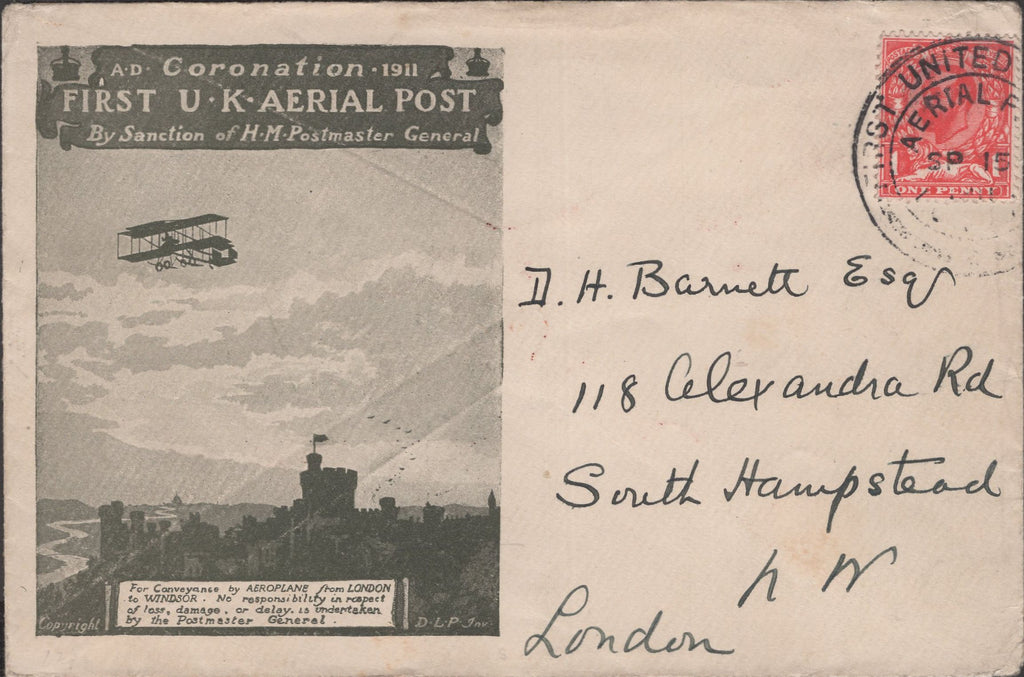 A·D· Coronation·1911
FIRST U·K·AERIAL POST
By Sanction of H·M·Postmaster General
For Conveyance by AEROPLANE from LONDON
to WINDSOR. No responsibility in respect
of loss, damage, or delay. is undertaken
by the Postmaster General.
Copyright
D·L·P Inv.
FIRST UNITED
AERIAL
SP 15
ONE PENNY
D. H. Barnett Esq
118 Alexandra Rd
South Hampstead
N W
London